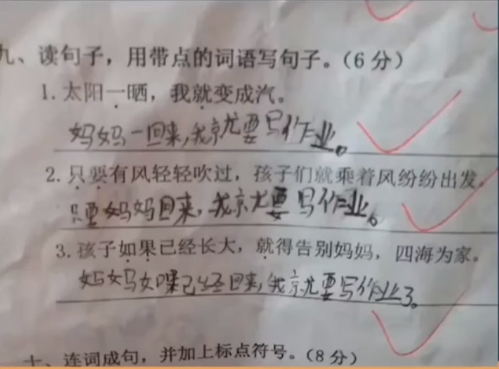 九、读句子，用带点的词语写句子。（6分）
1. 太阳一晒，我就变成汽。
妈妈一回来，我就要写作业。
2. 只要有风轻轻吹过，孩子们就乘着风纷纷出发。
只要妈妈回来，我就要写作业。
3. 孩子如果已经长大，就得告别妈妈，四海为家。
妈妈如果已经回来，我就要写作业了。
十、连词成句，并加上标点符号。（8分）